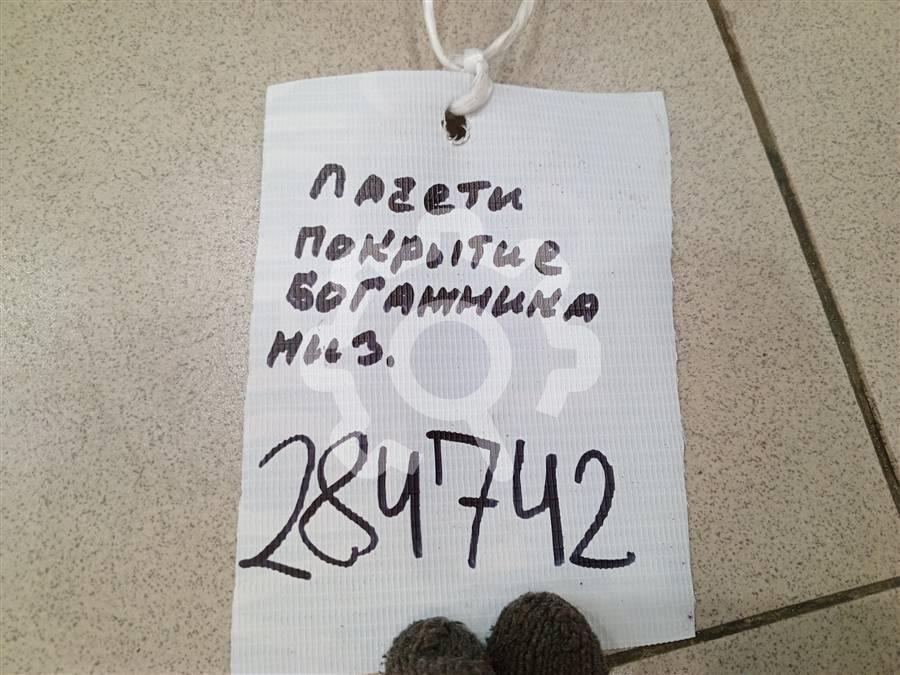 Лачети
покрытие
богажника
низ.
284742